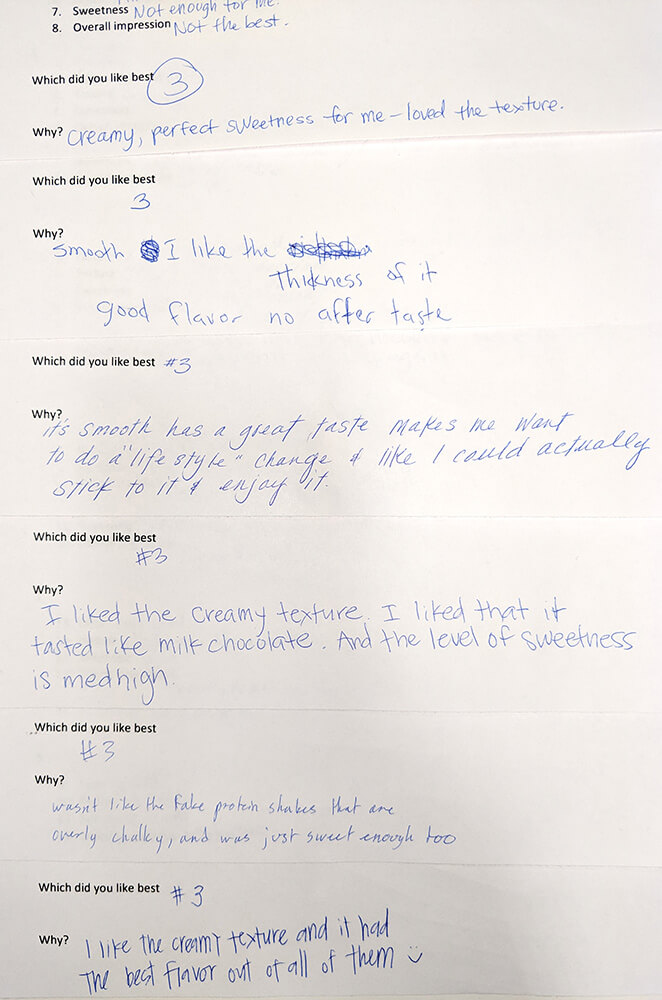 7. Sweetness Not enough for me.
8. Overall impression Not the best.
Which did you like best 3
Why? Creamy, perfect sweetness for me – loved the texture.
Which did you like best
3
Why?
smooth I like the
Thickness of it
good flavor no after taste
Which did you like best #3
Why?
it's smooth has a great taste makes me want
to do a "life style" change & like I could actually
stick to it & enjoy it.
Which did you like best
#3
Why?
I liked the creamy texture. I liked that it
tasted like milk chocolate. And the level of sweetness
is med high.
Which did you like best
#3
Why?
wasn't like the fake protein shakes that are
overly chalky, and was just sweet enough too
Which did you like best #3
Why? I like the creamy texture and it had
The best flavor out of all of them